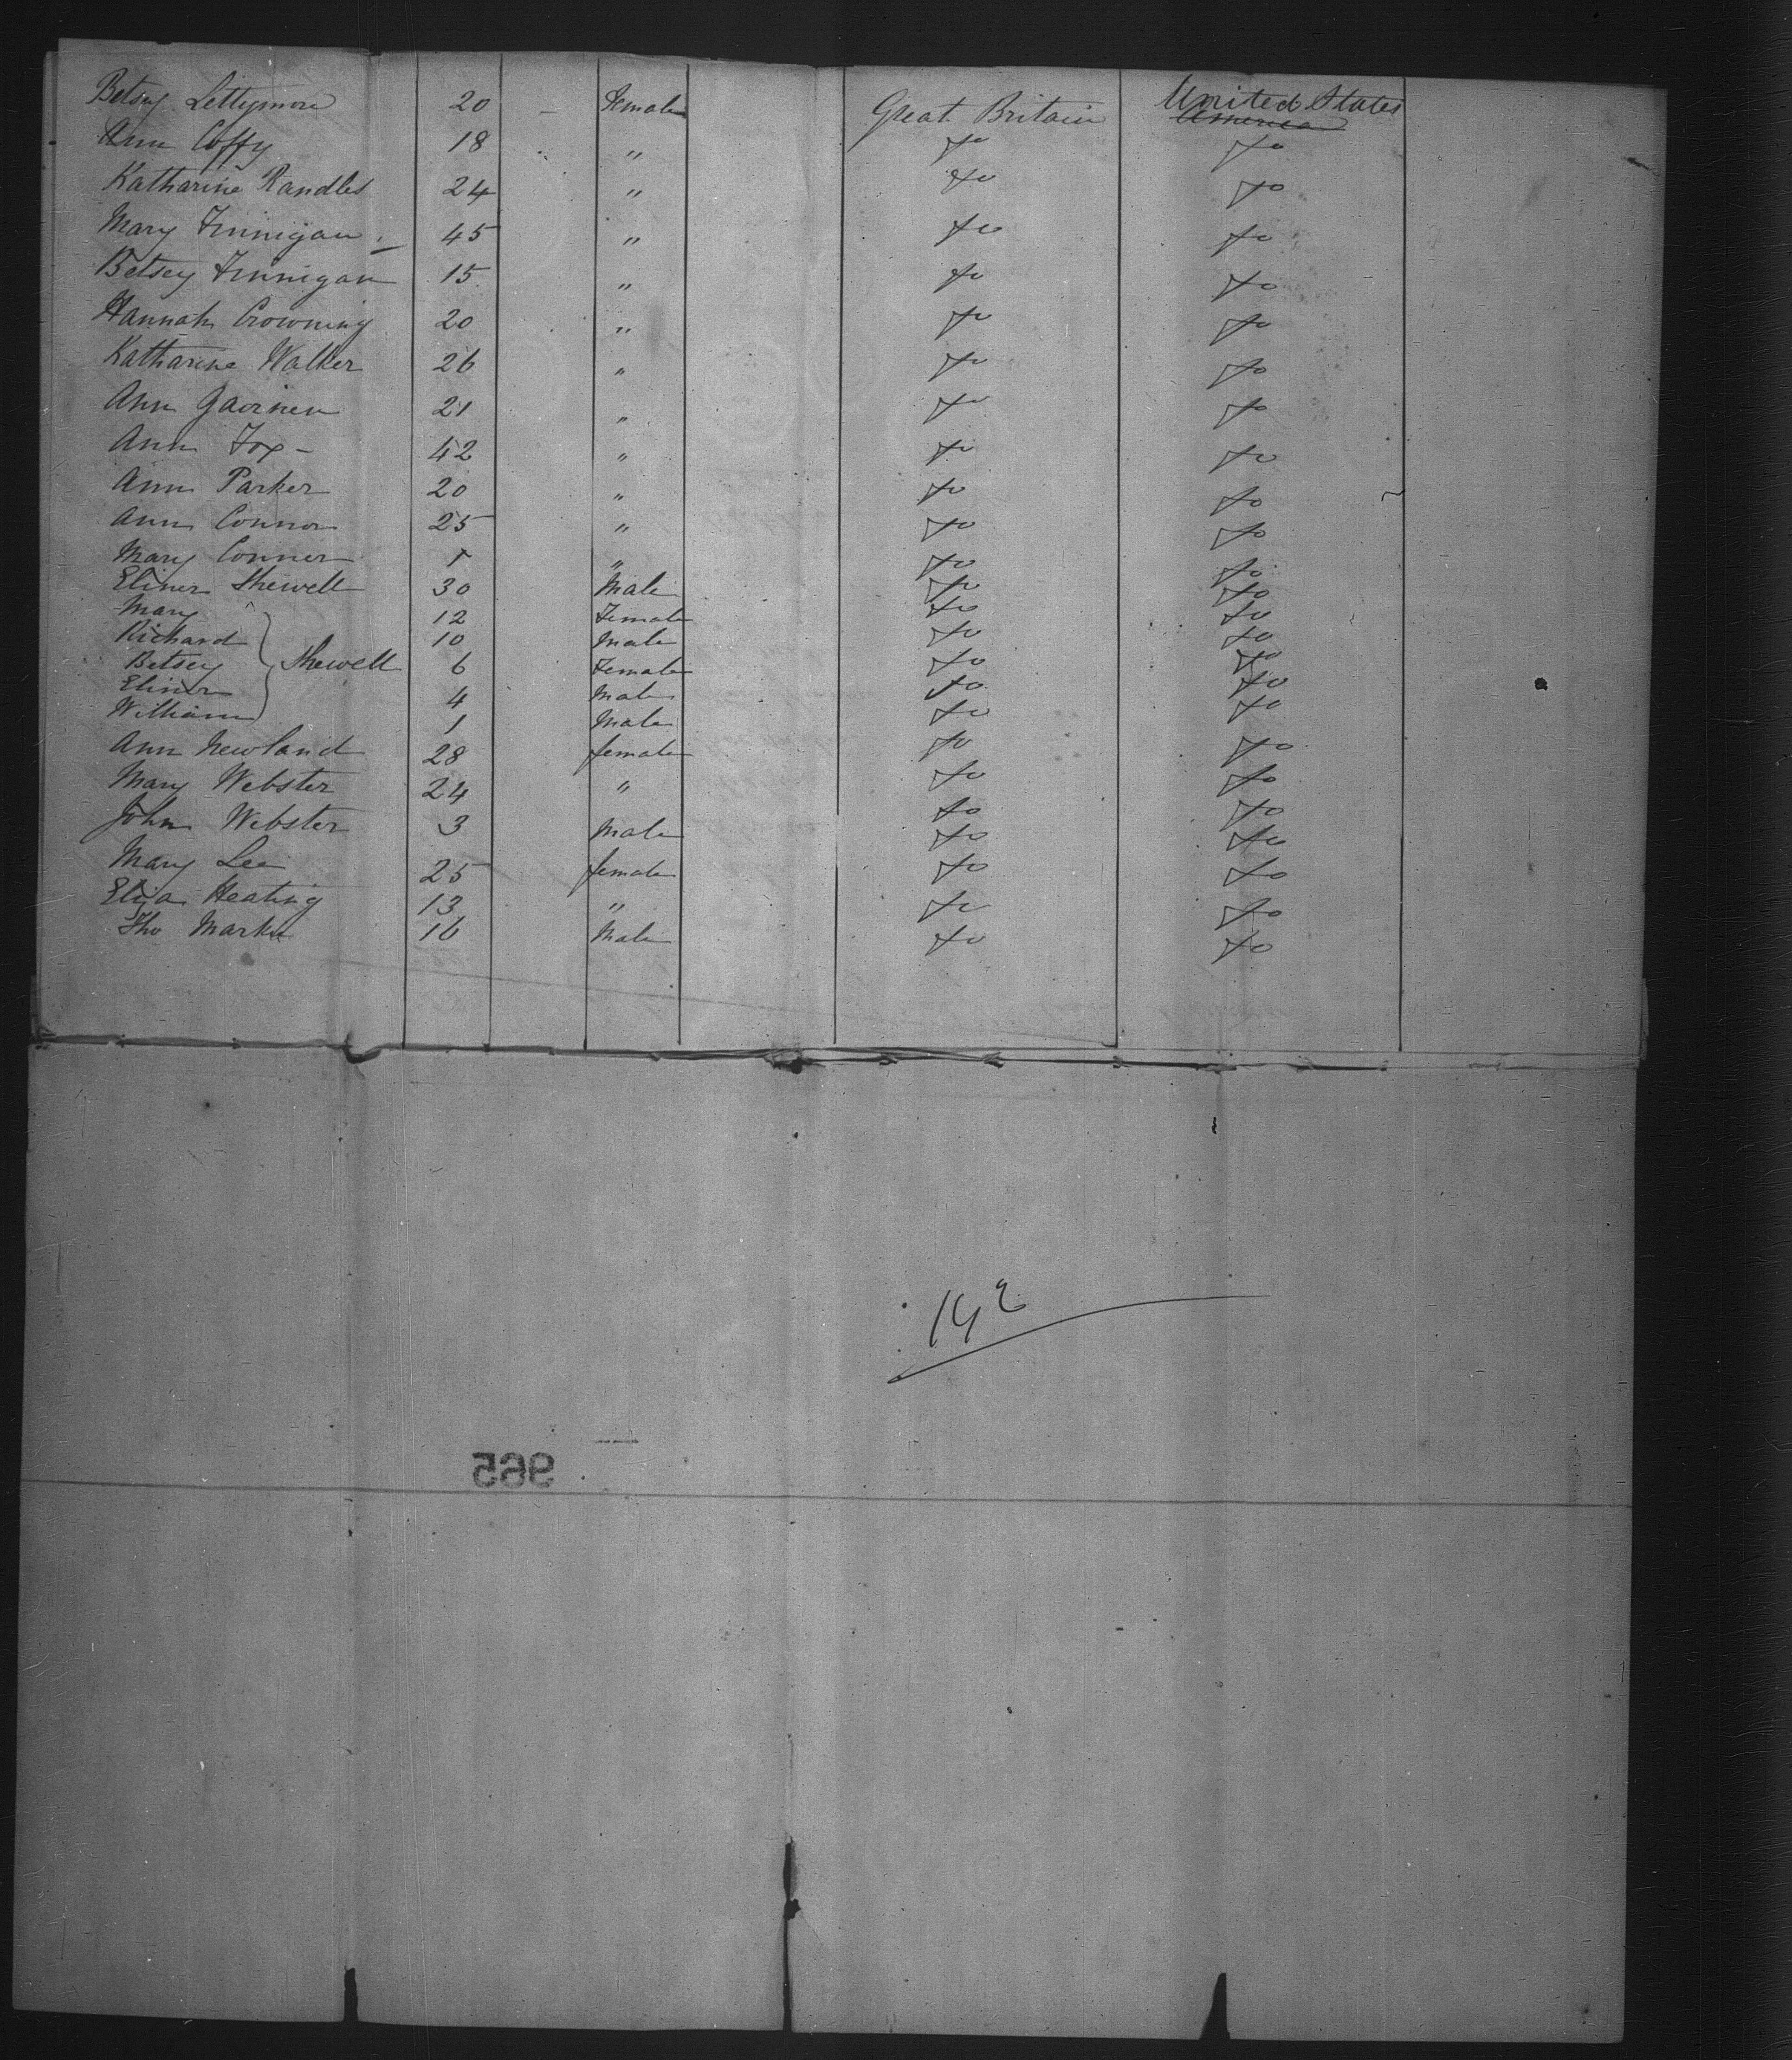 Betsy Lettymore 20 – Female Great Britain United States
America
Ann Coffy 18 " Do Do
Katharine Randles 24 " Do Do
Mary Finnigan 45 " Do Do
Betsey Finnigan 15 " Do Do
Hannah Crowning 20 " Do Do
Katharine Walker 26 " Do Do
Ann 21 " Do Do
Ann Fox – 42 " Do Do
Ann Parker 20 " Do Do
Ann Connor 25 " Do Do
Mary Conner " Do Do
Eliner Shewell 30 Male Do Do
Mary 12 Female Do Do
Richard 10 Male Do Do
Betsey Shewell 6 Female Do Do
Eliner 4 Male Do Do
William 1 Male Do Do
Ann Newland 28 female Do Do
Mary Webster 24 " Do Do
John Webster 3 Male Do Do
Mary Lee 25 female Do Do
Eliza Heating 13 " Do Do
Tho 16 Male Do Do
142
965